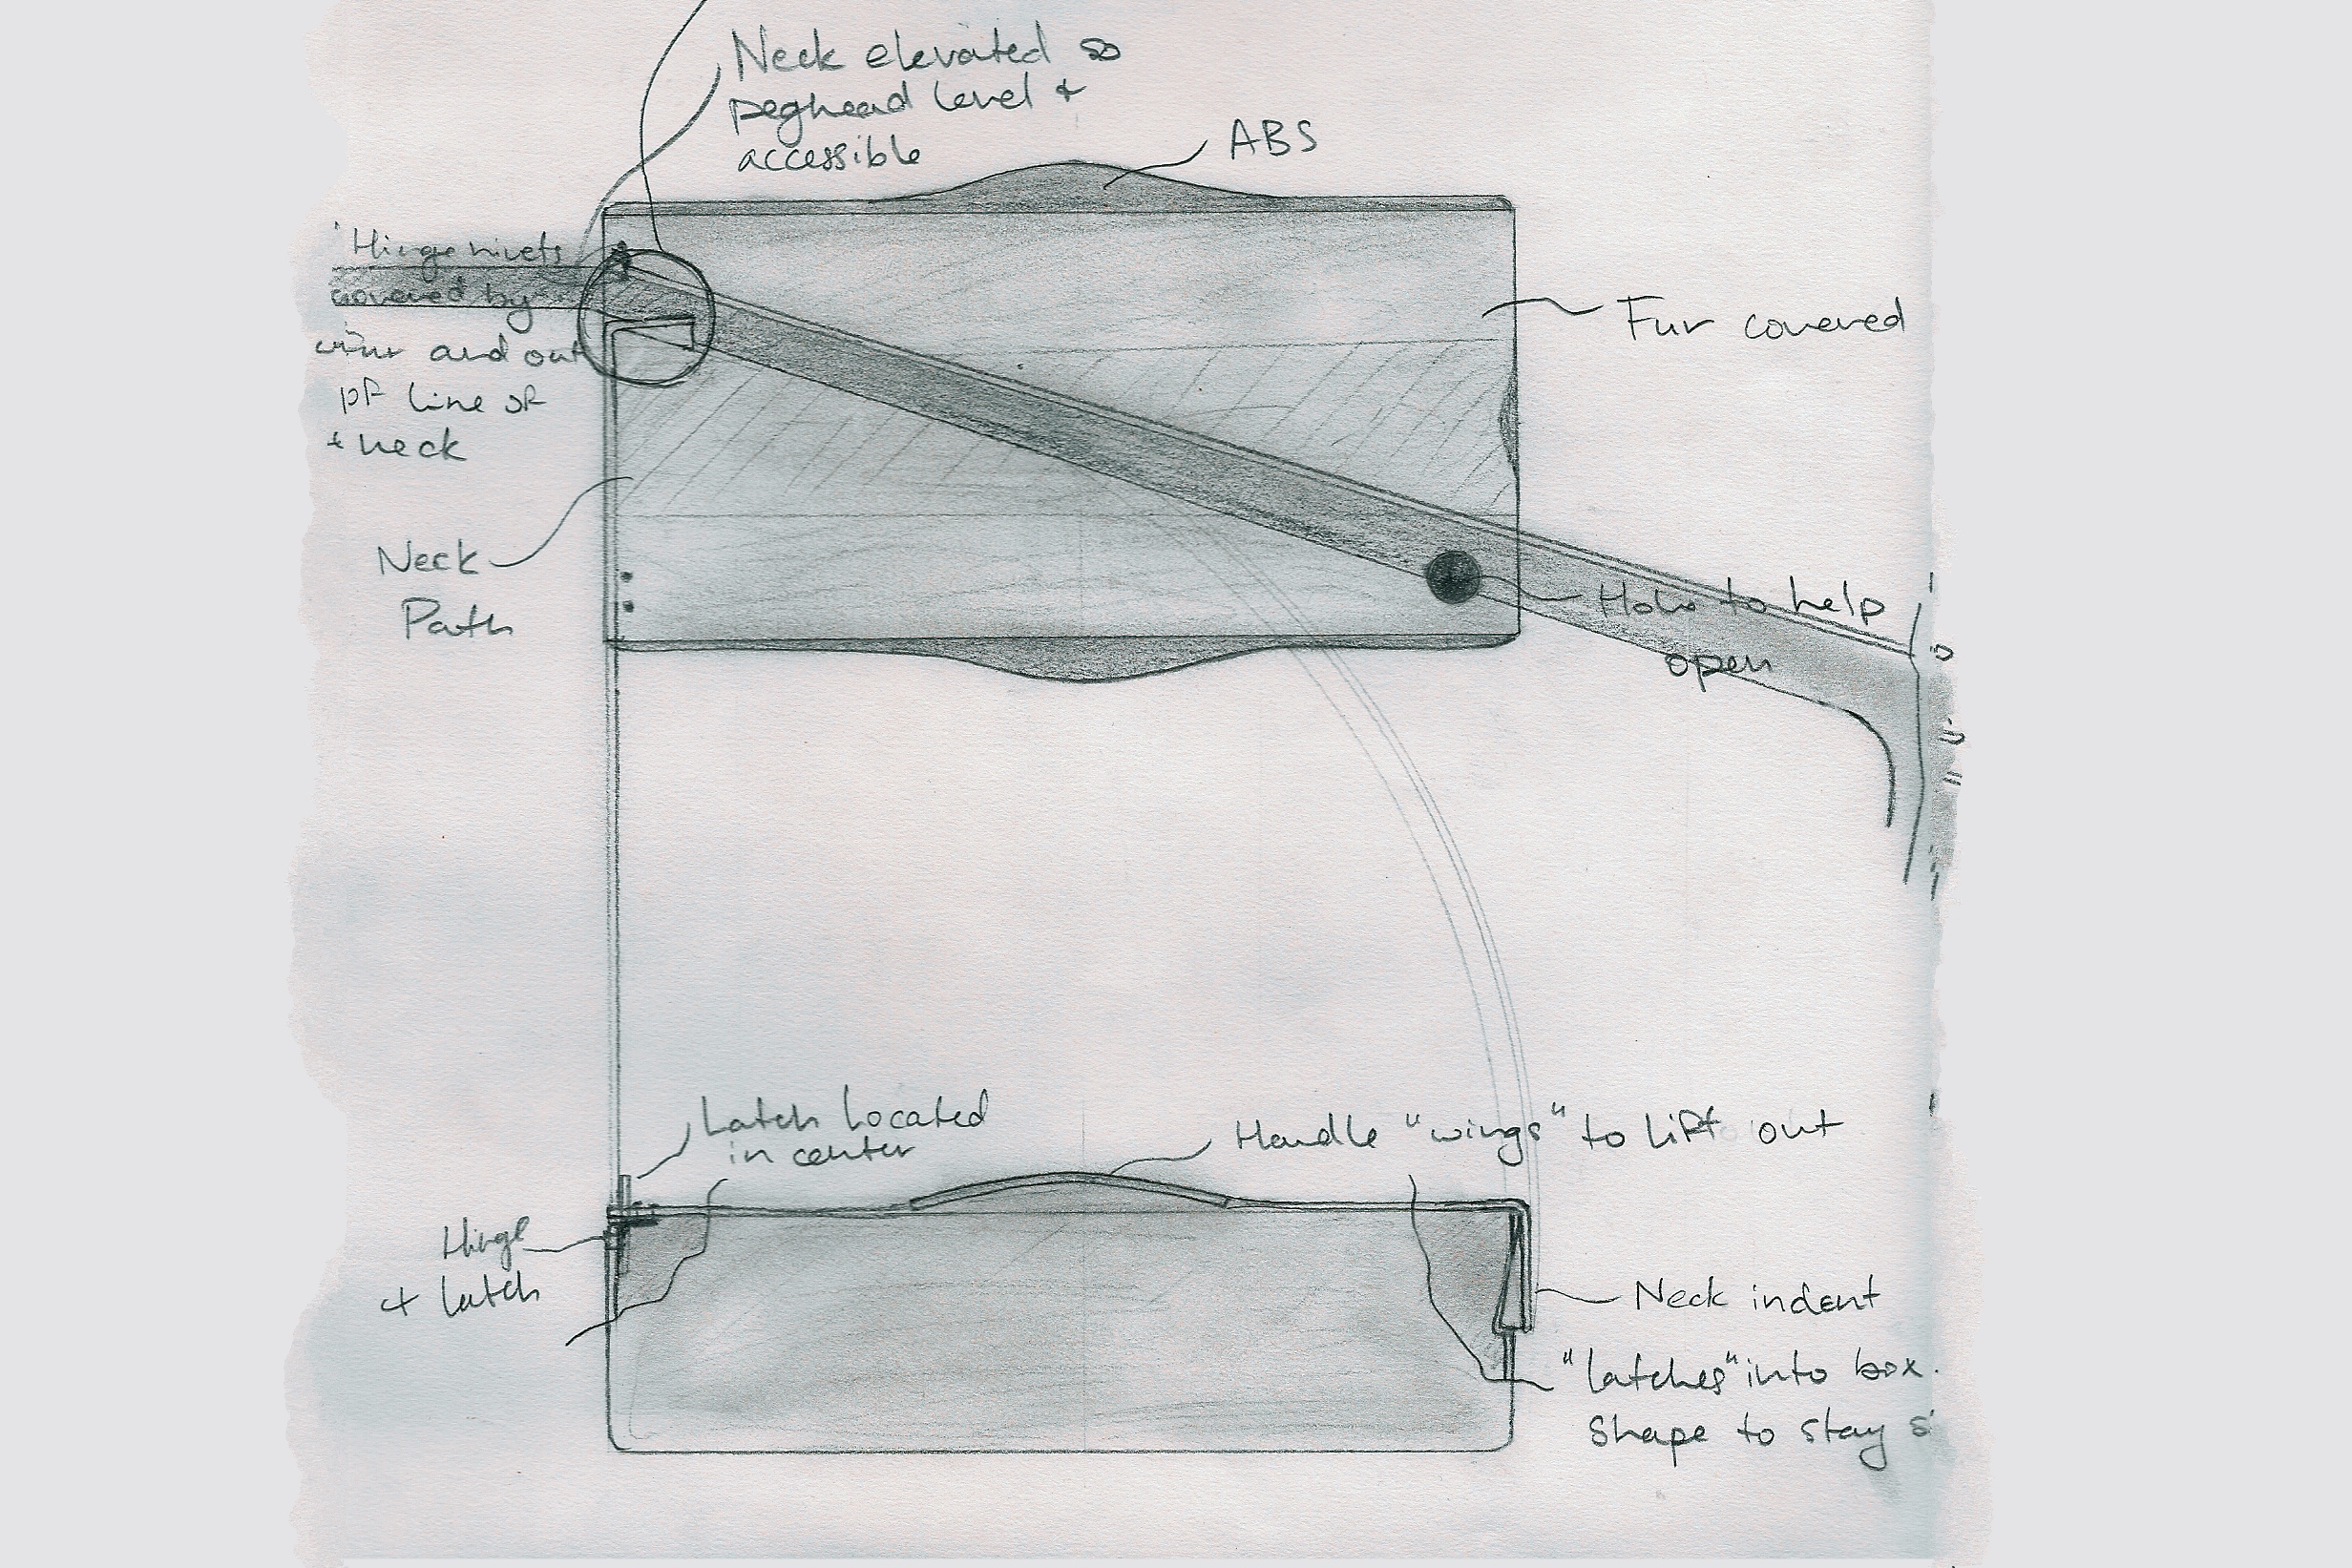 Neck elevated so
peghead level +
accessible
ABS
Hinge rivets
covered by
and out
of line of
neck
Fur covered
Neck
Path
Hole to help
open
Latch located
in center
Handle "wings" to lift out
Hinge
+ latch
Neck indent
"latches" into box.
Shape to stay